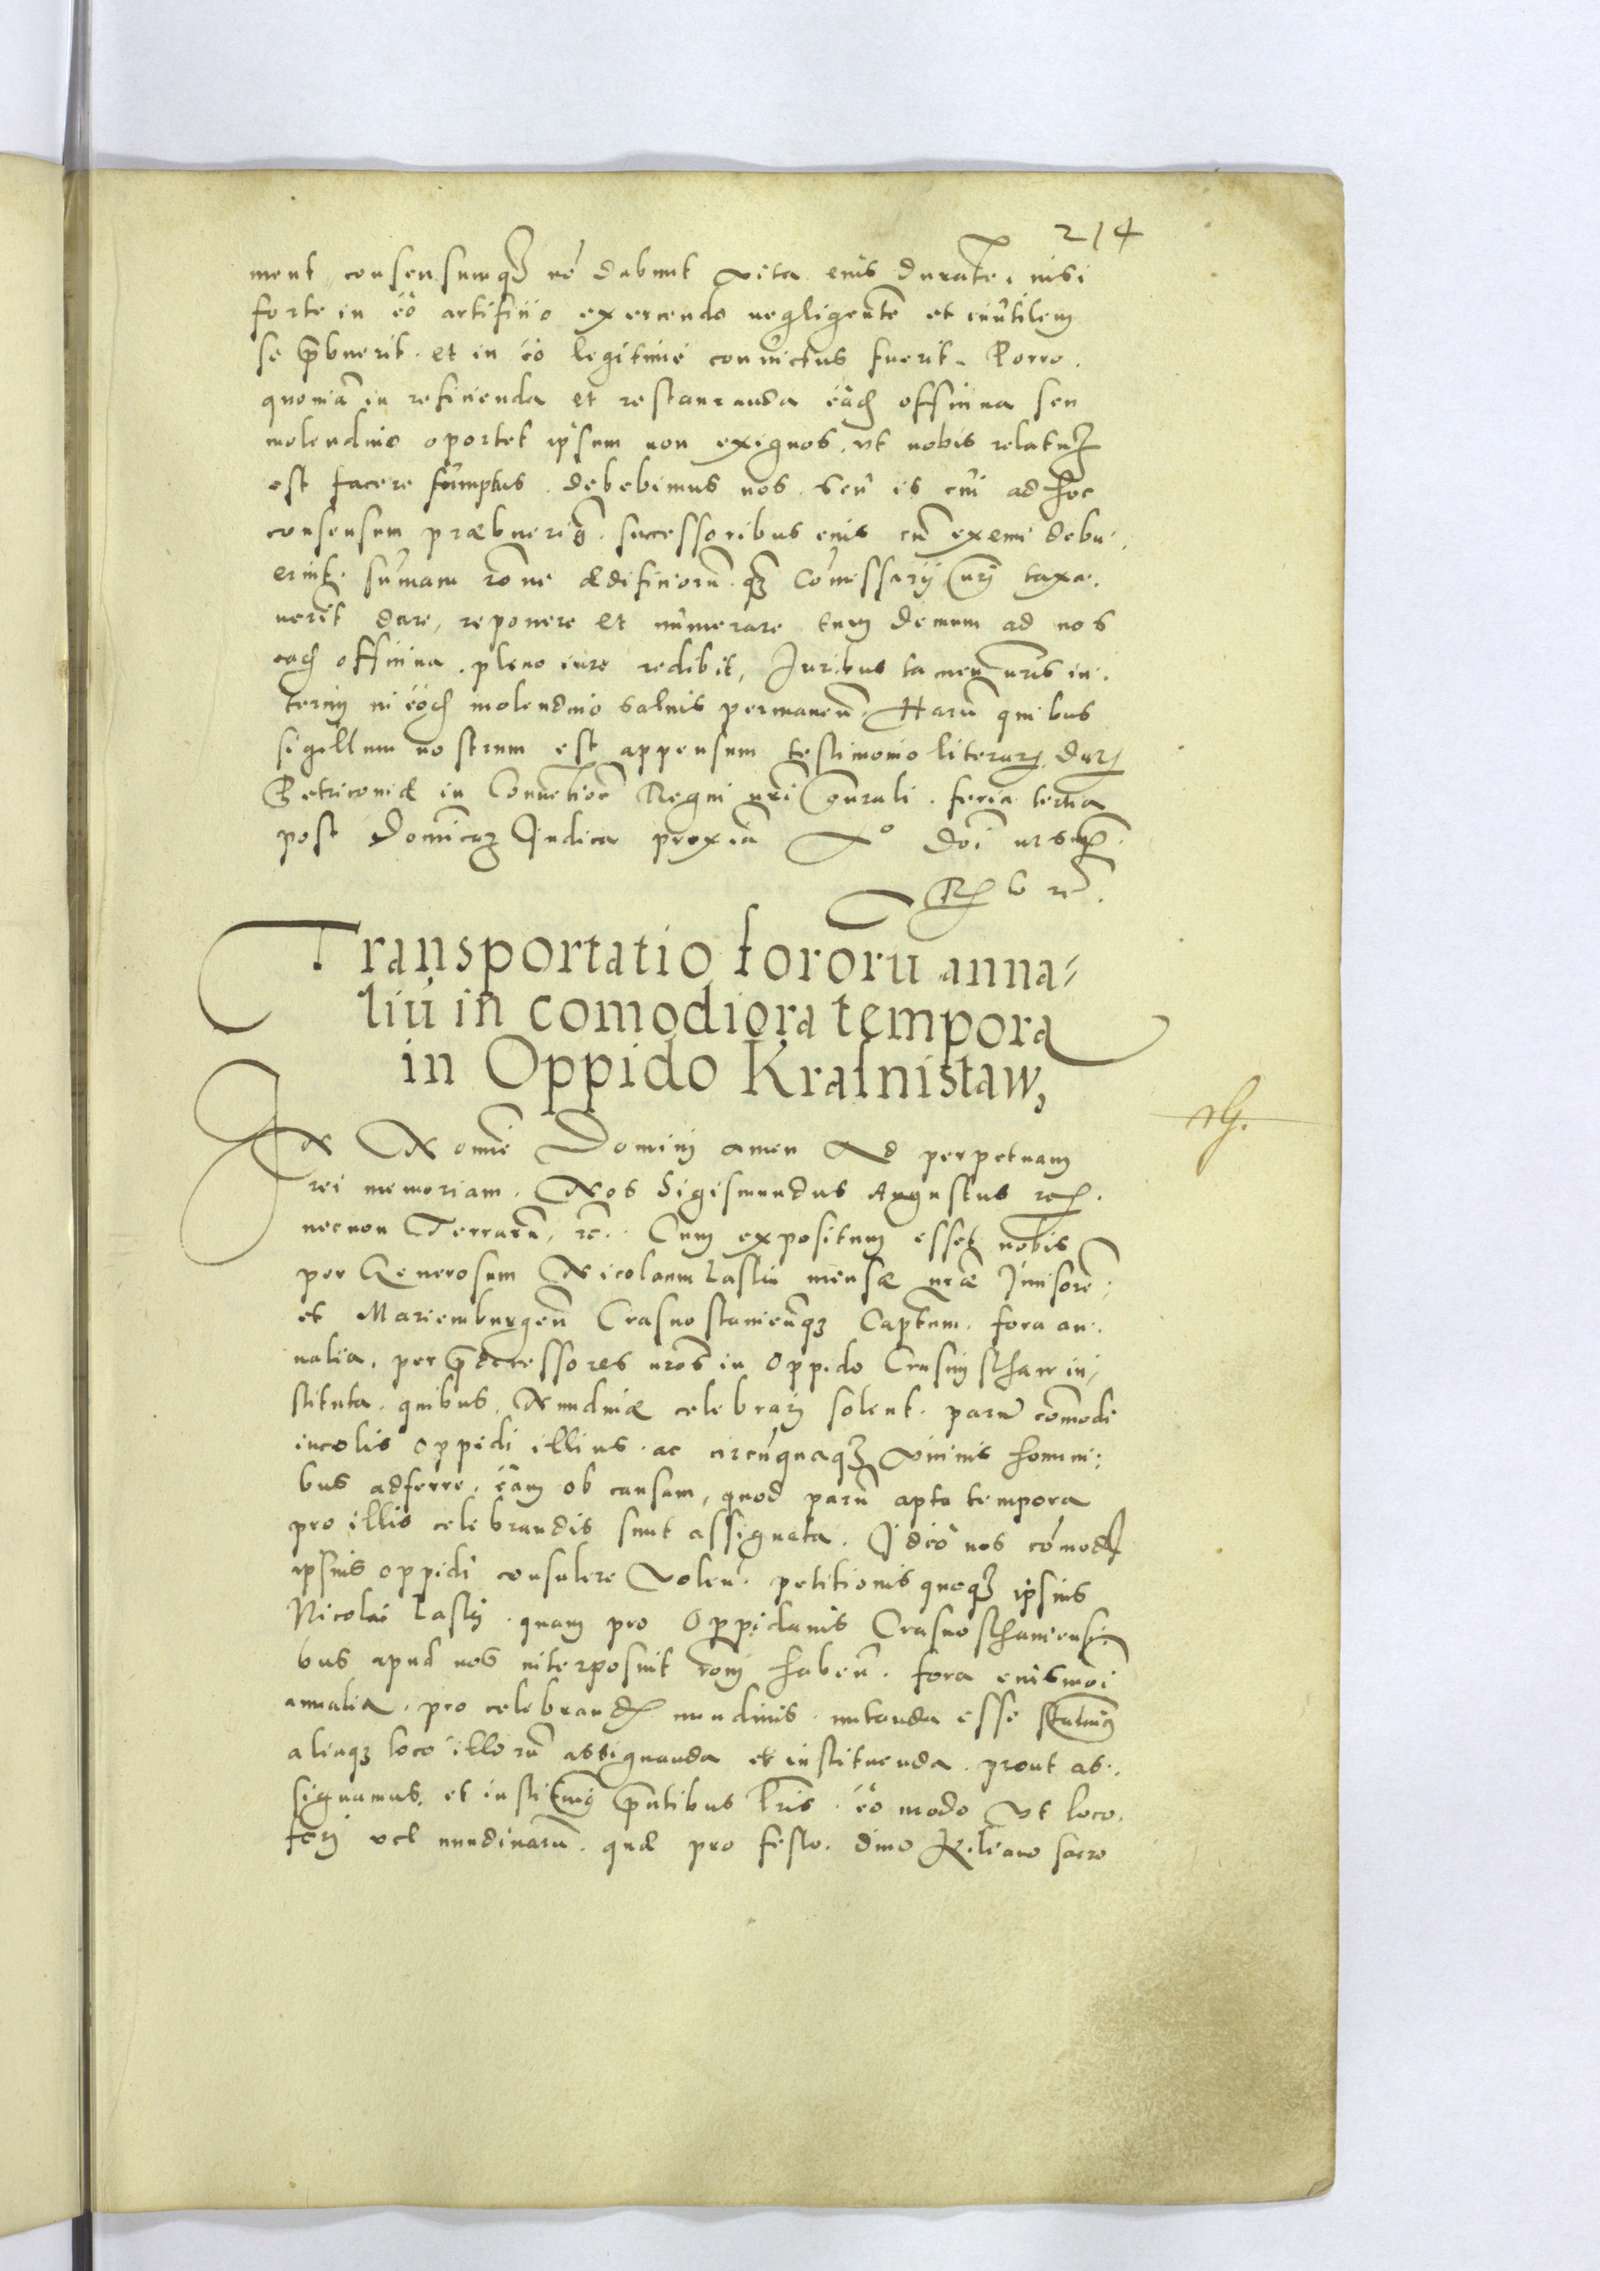 214
ment, consensumq₃ nō dabunt vita eius durate, nisi
forte in eo artificio exercendo negligentē et inutilem
se p̄buerit. et in eo legitime convictus fuerit. Porro.
quoniā in reficienda et restauranda eadē officina seu
molendino oportet ipsum non exiguos, ut nobis relatum
est facere sumptus. debebimus nos. seu is cui ad hoc
consensum præbuerim9. successoribus eius cū exemi debu.
erint. sumam rōne ædificiorū. quā Comissarij nri taxa.
verīt dare, reponere et numerare tum demum ad nos
eadē officina. pleno iure redibit, Iuribus tamen nrīs in.
terim in eodē molendino salvis permanēn. Harū quibus
sigillum nostrum est appensum testimonio literarum. Datum
Petricoviæ in Conventioe Regni nrī Gnrali. feria tertia
post Dominicā Iudica proxiā Ao Doī ut supra.
R. V rc.
Transportatio fororū anna=
liū in comodiora tempora
in Oppido Krasnistaw,
IN Nomīe Domini amen Ad perpetuam
rei memoriam. Nos Sigismundus Augustus rex.
necnon Terrarū, rc. Cum expositum esset nobis
per Generosum Nicolaum Lastij mensæ nræ Incisorē.
et Mariemburgeñ Crasnostavieñq₃ Captm. fora an.
nalia, per p̄decessores nros in Oppido Crasnijsthaw in/
stituta. quibus, Nundinæ celebrarj solent. parū comodi
incolis oppidi illius. ac circūquaq₃ vicinis homini:
bus adferre. eam ob causam, quod parū apta tempora
pro illis celebrandis sunt assignata. Idcō nos comodis
ipsius oppidi consulere voleñ. petitionis quoq₃ ipsius
Nicolai Lastij. quam pro Oppidanis Crasnosthaviensi:
bus apud nos interposuit rōnē habeñ. fora eiusmōi
annalia. pro celebrandis nundinis. mutanda esse statuim9
aliaq₃ loco illorū assignanda et instituenda. prout as.
signamus. et instituim9 p̄ntibus lris. eo modo ut loco.
forj vel nundinarū. quæ pro festo. divo Kiliano sacro